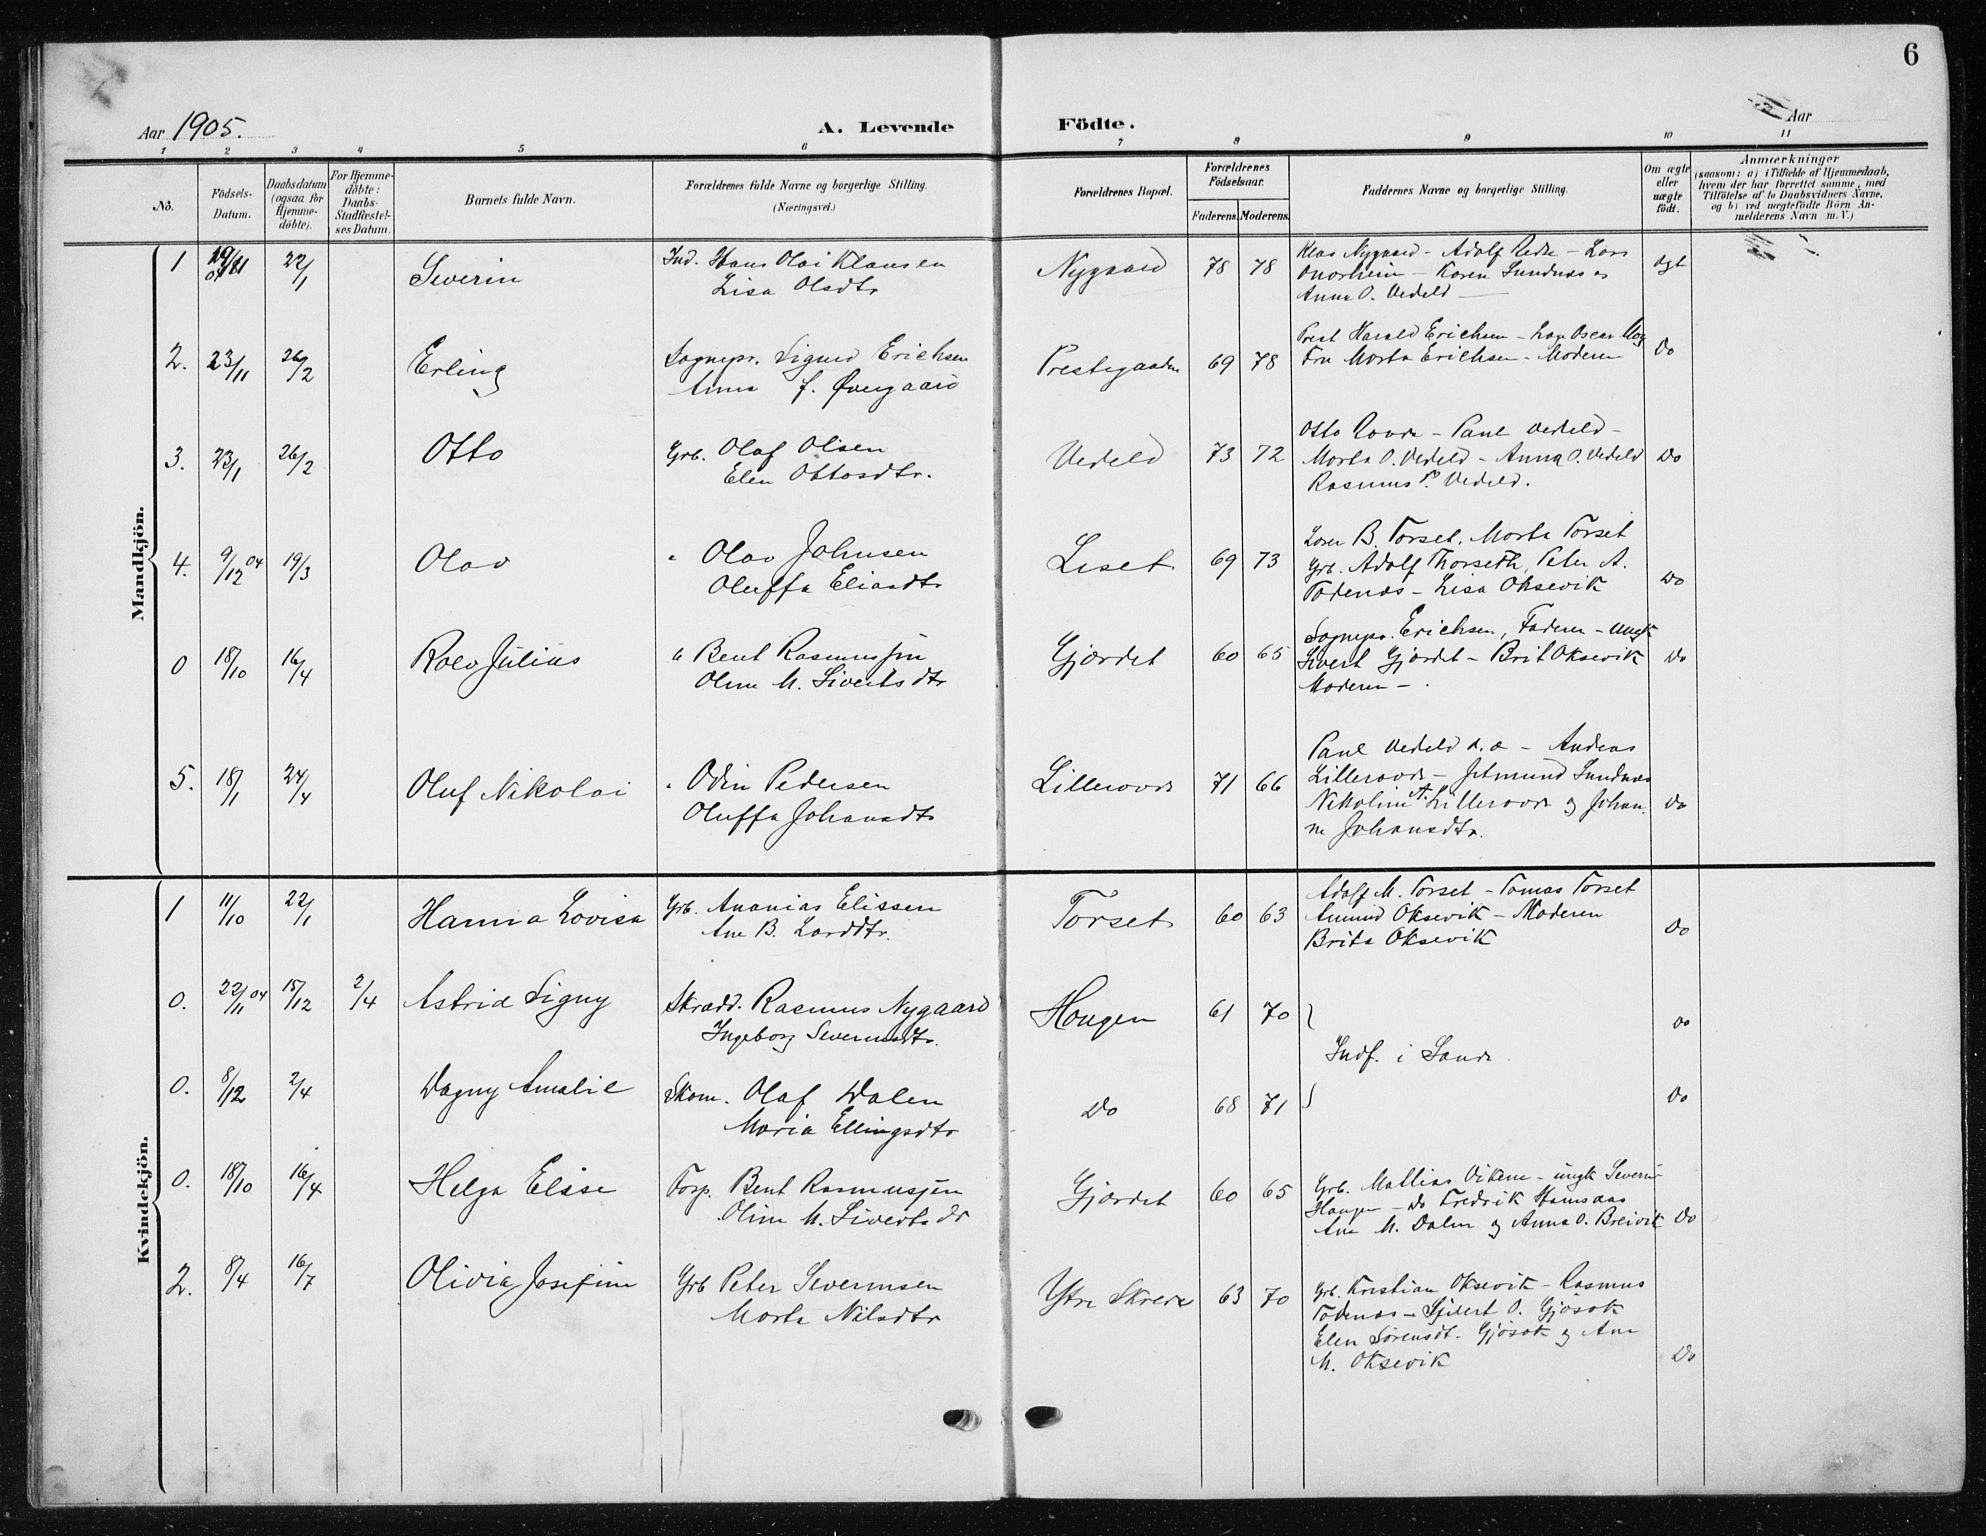 6
Aar 1905.
A. Levende Födte.
Aar
1 2 3 4 5 6 7 8 9 10 11
No.
Födsels-
Datum.
Daabsdatum
(ogsaa for
Hjemme-
döbte).
For Hjemme-
döbte:
Daabs-
Stadfæstel-
ses Datum.
Barnets fulde Navn.
Forældrenes fulde Navne og borgerlige Stilling.
(Næringsvei.)
Forældrenes Bopæl.
Forældrenes
Födselsaar.
Faderens. Moderens.
Faddernes Navne og borgerlige Stilling.
Om ægte
eller
uægte
födt.
Anmærkninger
(saasom: a) i Tilfælde af Hjemmedaab,
hvem der har forrettet samme, med
Tilföielse af to Daabsvidners Navne,
og b) ved uægtefödte Börn An-
melderens Navn m. V.)
Mandkjön.
1 22/1 Severin Ind. Hans Olai Klausen
Lisa Olsdtr
Nygaard 78 78
Klas Nygaard - Adolf - Lars
- Karen Sundnæs og
Anna O. Vedeld
ægt
2. 23/11 26/2 Erling Sognepr. Sigurd Erichsen
Anna f. Øvergaard
Prestegaarden 69 78
Prest Harald Erichsen - Oscar
Fru Marta Erichsen - Moderen
Do
3. 23/1 26/2 Otto Grb. Olaf Olsen
Elen Ottosdtr.
Vedeld 73 72
Otto Rovde - Paul Vedeld -
Marta O. Vedeld - Anna O. Vedeld
Rasmus P. Vedeld.
Do
4. 9/12 04 19/3 Olav " Olav Johnsen
Oluffa Eliasdtr
Liset 69 73
B. Torset, Marta Torset
Grb. Adolf Thorseth, Peter A.
Tødenæs - Lisa Oksevik
Do
0 18/10 16/4 Rolv Julius " Bent Rasmussen
Oline M. Sivertsdtr
Gjærdet 60 65
Sognepr. Erichsen, Faderen - Ungk
Sivert Gjærdet - Brit Oksevik
Moderen - .
Do
5. 18/1 24/4 Oluf Nikolai " Odin Pedersen
Oluffa Johansdtr
Lillerovde 71 66
Paul Vedeld d. æ - Andreas
Lillerovde - Jetmund Sundnæs
Nikoline A. Lillerovde og Johan
ne Johansdtr.
Do
Kvindekjön.
1 11/10 22/1 Hanna Lovisa Grb. Ananias Elissen
Ane B. Larsdtr.
Torset 60 63
Adolf M. Torset - Tomas Torset
Amund Oksevik - Moderen
Brita Oksevik
Do
0. 22/11 04 15/12 2/4 Astrid Signy Skrædd. Rasmus Nygaard
Ingeborg Severinsdtr.
Haugen 61 70
Do
Indf. i Sande
0. 8/12 2/4 Dagny Amalie Skom. Olaf Dalen
Maria Ellingsdtr
Do 68 71
Do
0. 18/10 16/4 Helga Elise Forp. Bent Rasmussen
Oline M. Sivertsdr
Gjærdet 60 65
Grb. Mattias Vikene - ungk Severin
Haugen - Do Fredrik Hamsaas
Ane M. Dalen og Anna O. Breivik
Do
2. 8/4 16/7 Olivia Josefine Grb Peter Severinsen
Marta Nilsdtr
Ytre Skrede 63 70
Grb. Kristian Oksevik - Rasmus
Tødenæs - Sjivert O. Gjøsok
Elen Sørensdt. Gjøsok og Ane
M. Oksevik
Do